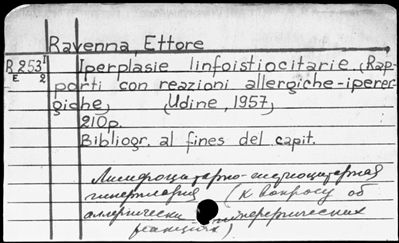 Ravenna, Ettore
R 253 1/2 Iperplasie linfoistiocitarie. (Rap-
E porti con reazioni allergiche-iperer-
giche) (Udine, 1957)
210p.
Bibliogr. al fines del capit.
Лимфоцитарно-гистиоцитарная
гиперплазия (К вопросу об
аллергически- гиперергических
реакциях)